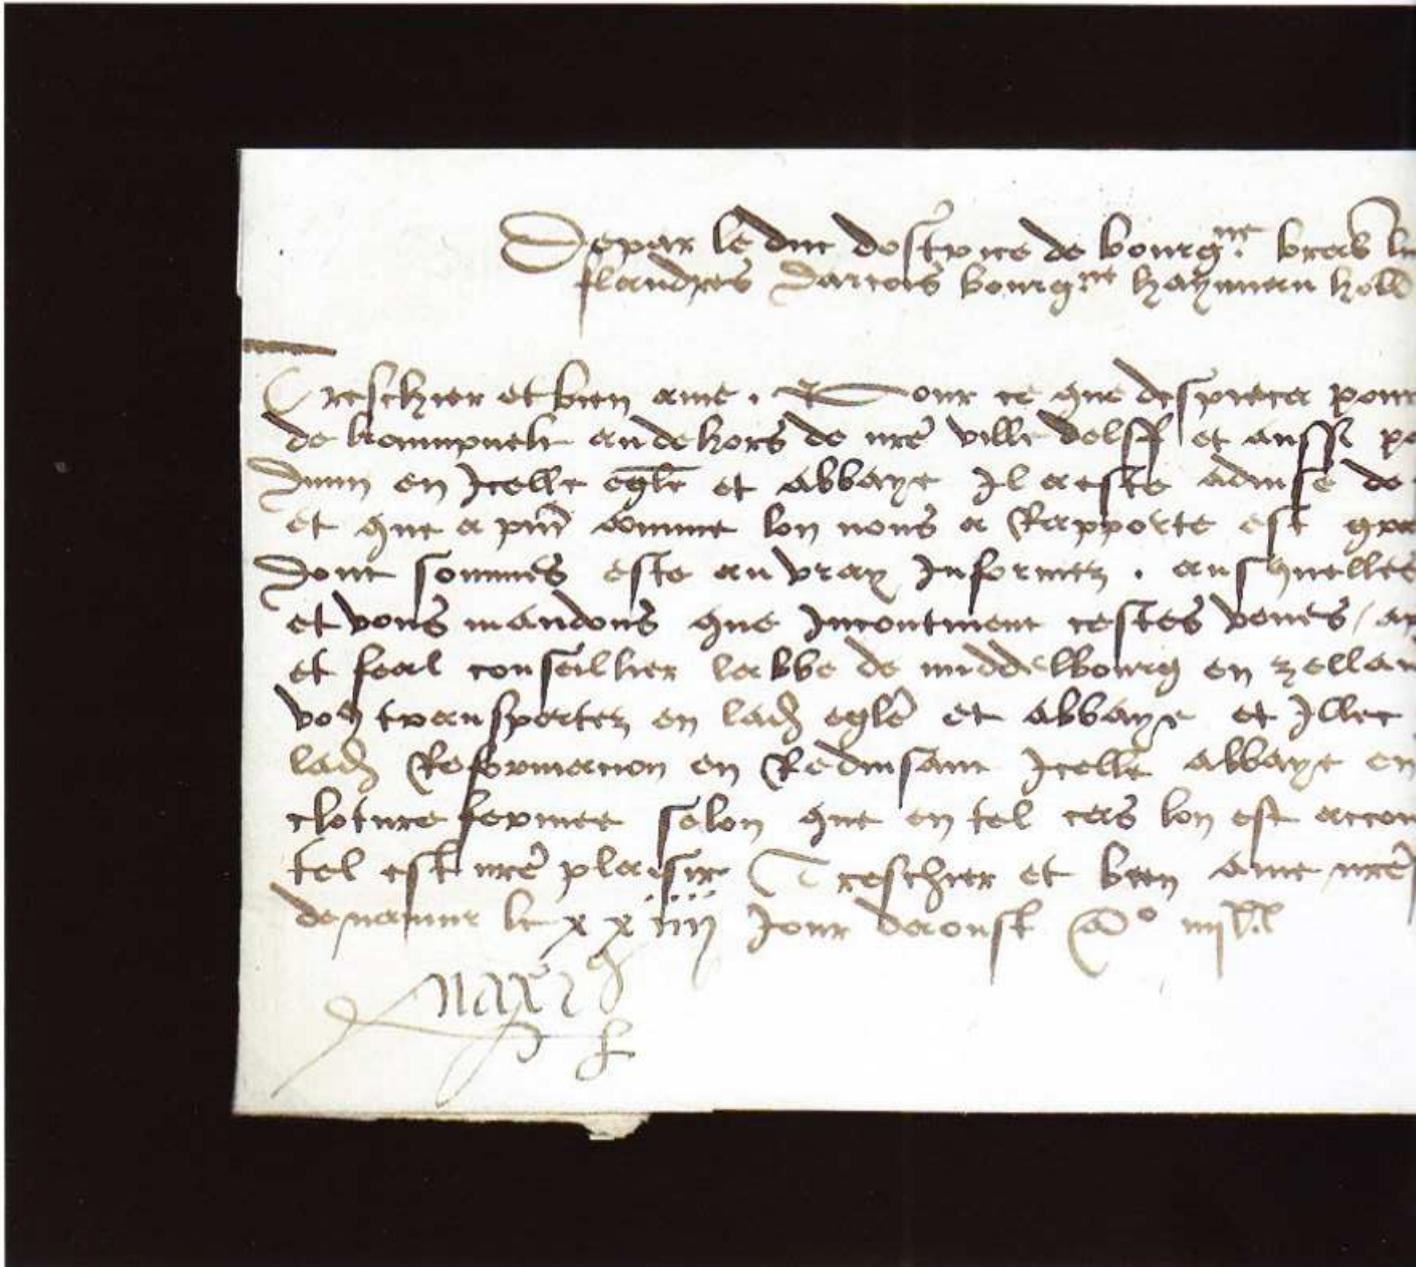 Depar le duc dostrice de bourg.ne brab
flandres Dartois bourg.ne haynnau holl
Treschier et bien ame . Pour ce que despieca pour
de au dehors de nre ville delff et aussi
Dum en Icelle egle et abbaye Il a este aduise de
et que a pnt comme lon nous a Rapporte est
Dont sommes este au vray Informez . ausquelles
et vous mandons que Incontinent cestes veues /
et feal conseillier labbe de middelbourg en zellan
vo9 transportez en lad egle et abbaye et Illec
lad Reformacion en Reduisant Icelle abbaye en
cloture fermee selon que en tel cas lon est accou
tel est nre plaisir Treschier et bien ame nre
de namur le xxiiij Jour daoust Ao
Maxi